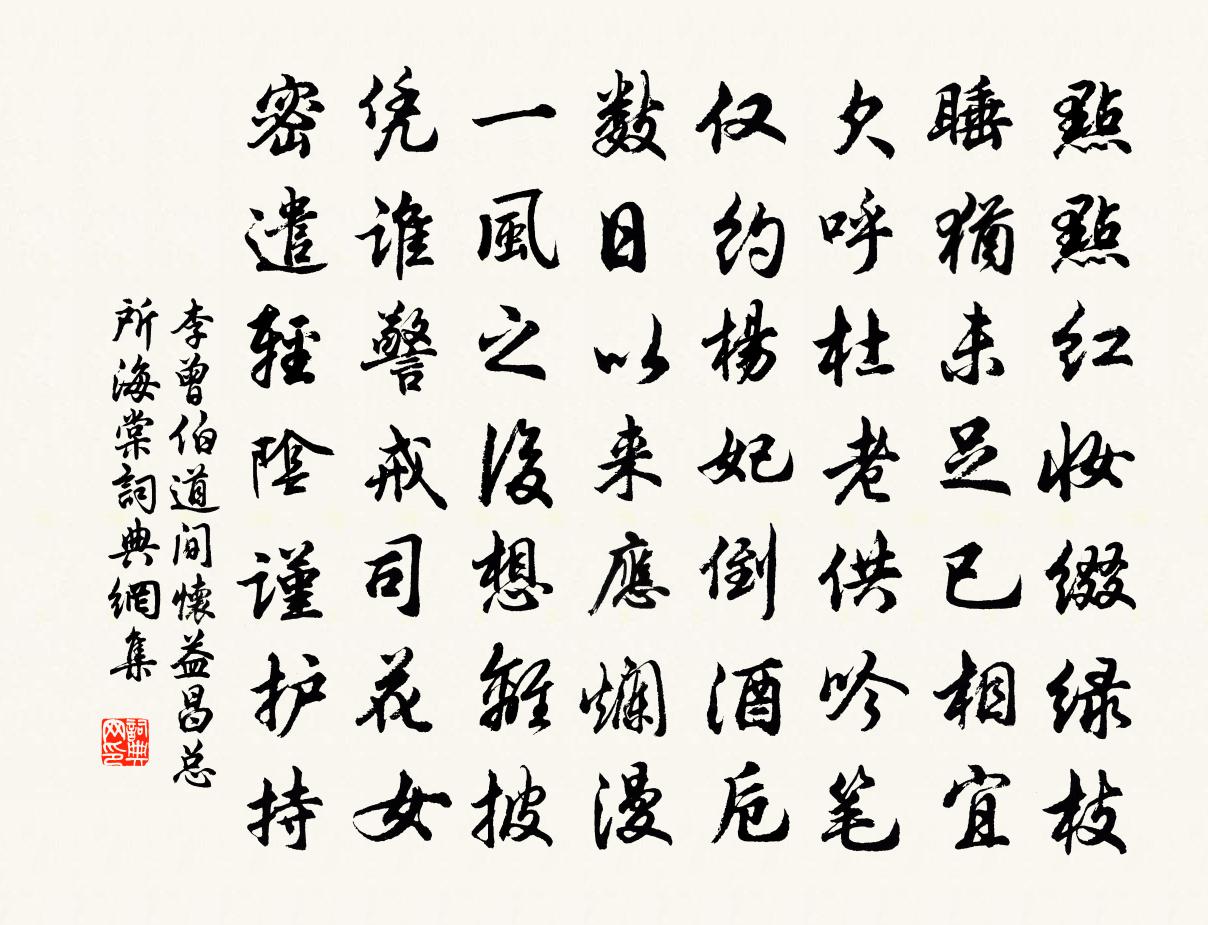 點點红妆缀绿枝
睡犹未足已相宜
欠呼杜老供吟笔
仅约杨妃倒酒卮
数日以来應爛漫
一風之後想離披
凭谁警戒司花女
密遣輕陰谨护持
李曾伯道间懷益昌总
所海棠詞典網集
詞典
网印